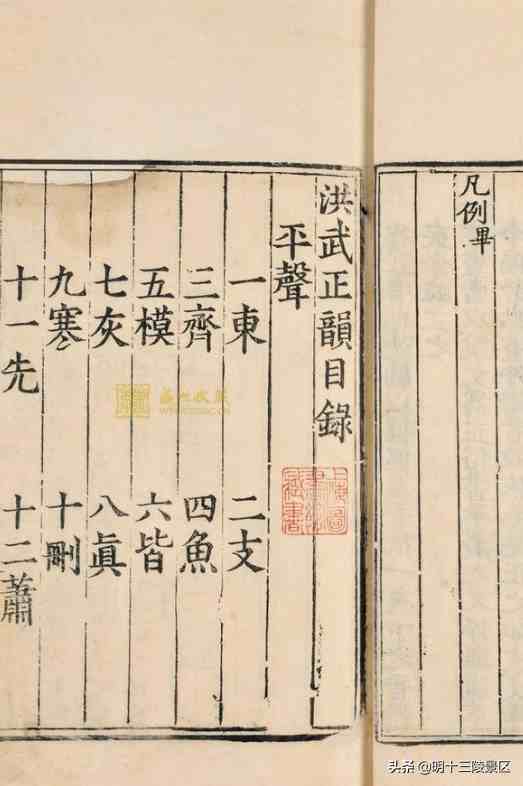 凡例畢
洪武正韻目錄
平聲
一東 二支
三齊 四魚
五模 六皆
七灰 八眞
九寒 十刪
十一先 十二蕭
上海圖書館藏書
头条 @明十三陵景区